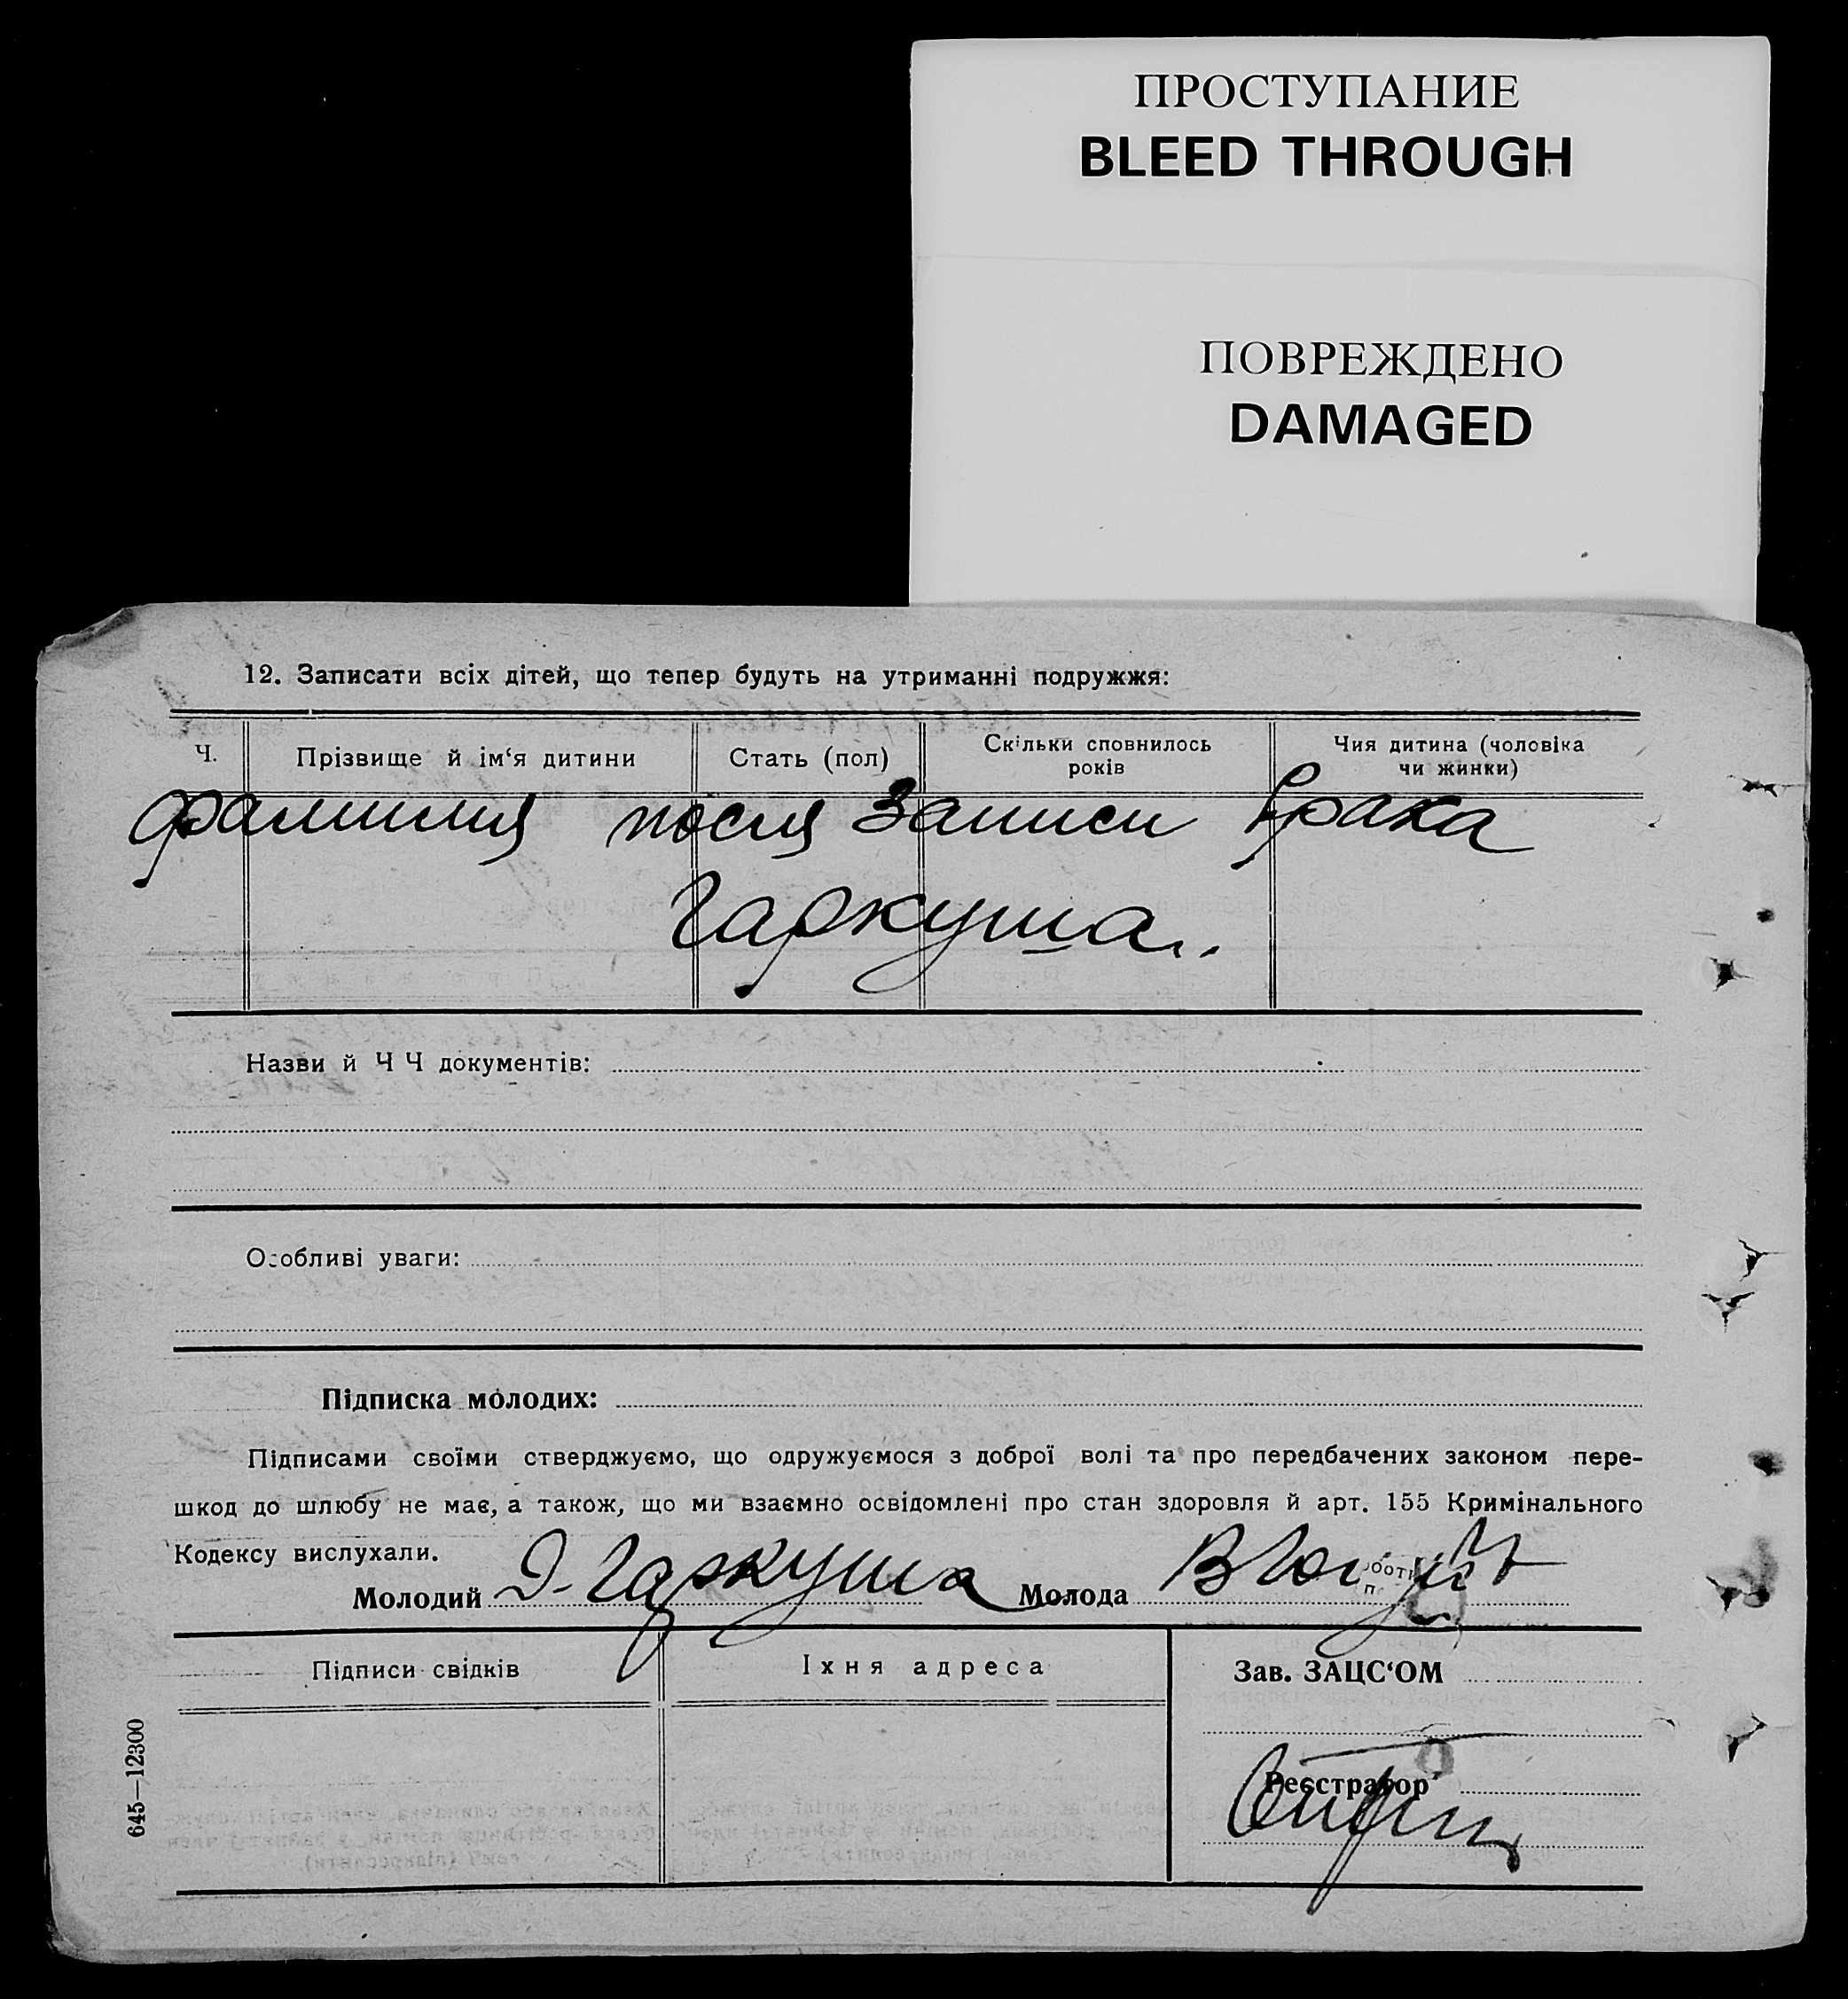 ПРОСТУПАНИЕ
BLEED THROUGH
ПОВРЕЖДЕНО
DAMAGED
12. Записати всіх дітей, що тепер будуть на утриманні подружжя:
Ч.
Прізвище й ім‘я дитини
Стать (пол)
Скільки сповнилось
років
Чия дитина (чоловіка
чи жинки)
фамилия посля записи брака
Гаркуша
Назви й Ч Ч документів:
Особливі уваги:
Підписка молодих:
Підписами своїми стверджуємо, що одружуємося з доброї волі та про передбачених законом пере-
шкод до шлюбу не має, а також, що ми взаємно освідомлені про стан здоровля й арт. 155 Кримінального
Кодексу вислухали.
Молодий Д. Гаркуша Молода
Підписи свідків
Іхня адреса
Зав. ЗАЦС‘ОМ
Реєстратор
645—12300